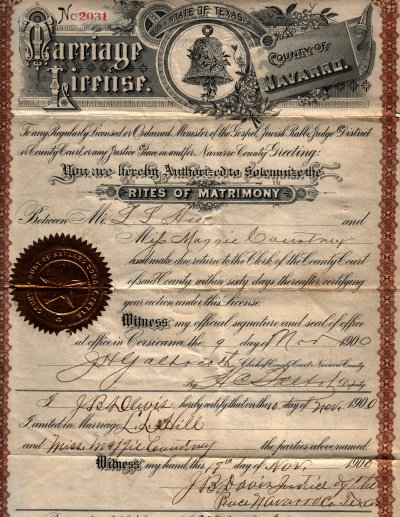 No 2031
STATE OF TEXAS
Marriage
License.
COUNTY OF
NAVARRO.
To any Regularly Licensed or Ordained Minister of the Gospel, Jewish Rabbi, Judge District
or County Court, or any Justice Peace in and for Navarro County Greeting:
You are hereby Authorized to Solemnize the
RITES OF MATRIMONY
Between Mr. and
Miss Maggie Courtney
and make due return to the Clerk of the County Court
of said County within sixty days thereafter certifying
your action under this License.
Witness my official signature and seal of office
at office in Corsicana the 9 day of Nov 1900
J H Galbreath Clerk of County Court Navarro County.
By Deputy
I J. B. Davis, hereby certify that on the day of Nov. 1900
I united in Marriage Hill
and Miss Maggie Courtney the parties above named.
Witness my hand this day of Nov. 1900
J B Davis Justice of the
Peace Navarro Co. Texas